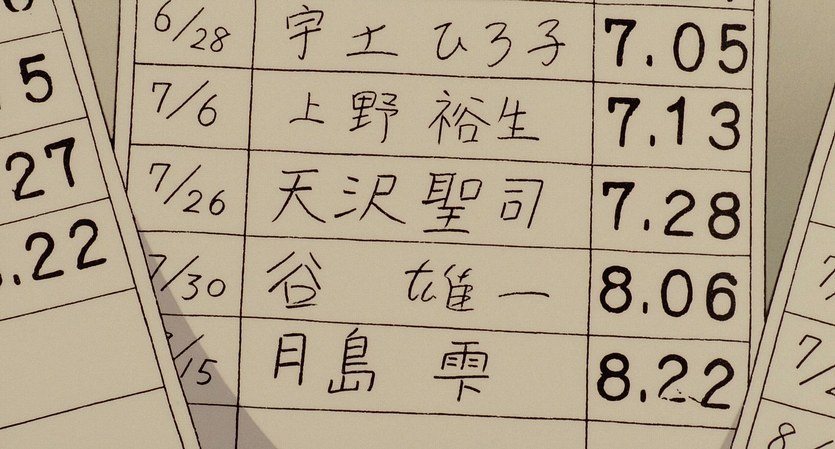 6/28 宇土 ひろ子 7.05
7/6 上野 裕生 7.13
7/26 天沢聖司 7.28
7/30 谷 雄一 8.06
/15 月島 雫 8.22
5
27
.22
7/
8/